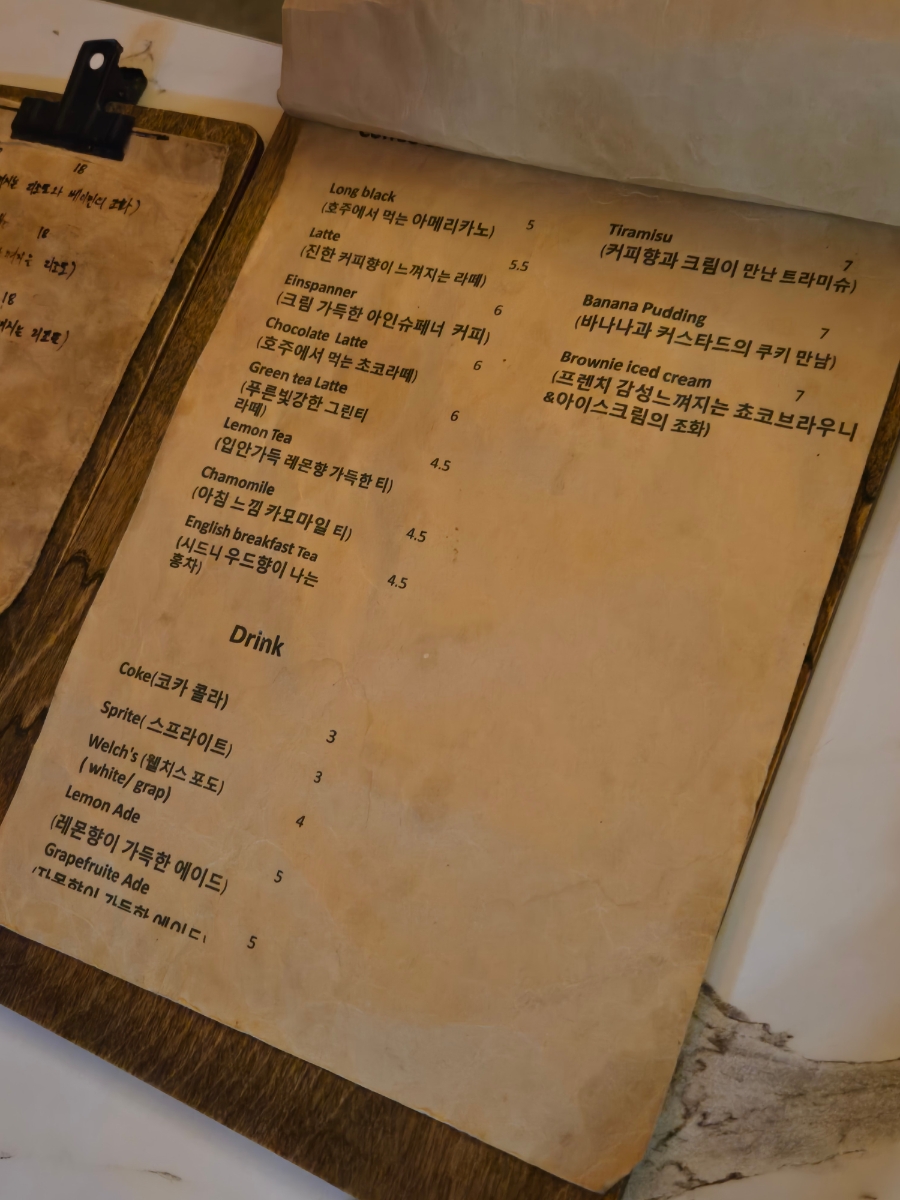 18
18
18
Long black
(호주에서 먹는 아메리카노) 5
Latte
(진한 커피향이 느껴지는 라떼) 5.5
Einspanner
(크림 가득한 아인슈페너 커피) 6
Chocolate Latte
(호주에서 먹는 초코라떼) 6
Green tea Latte
(푸른빛강한 그린티 6
라떼)
Lemon Tea
(입안가득 레몬향 가득한 티) 4.5
Chamomile
(아침 느낌 카모마일 티) 4.5
English breakfast Tea
(시드니 우드향이 나는 4.5
홍차)
Drink
Coke(코카 콜라)
3
Sprite( 스프라이트)
3
Welch's (웰치스 포도)
( white/ grap) 4
Lemon Ade
(레몬향이 가득한 에이드) 5
Grapefruite Ade
(자몽향이 가득한 에이드) 5
Tiramisu 7
(커피향과 크림이 만난 트라미슈)
Banana Pudding 7
(바나나과 커스타드의 쿠키 만남)
Brownie iced cream 7
(프렌치 감성느껴지는 쵸코브라우니
&아이스크림의 조화)